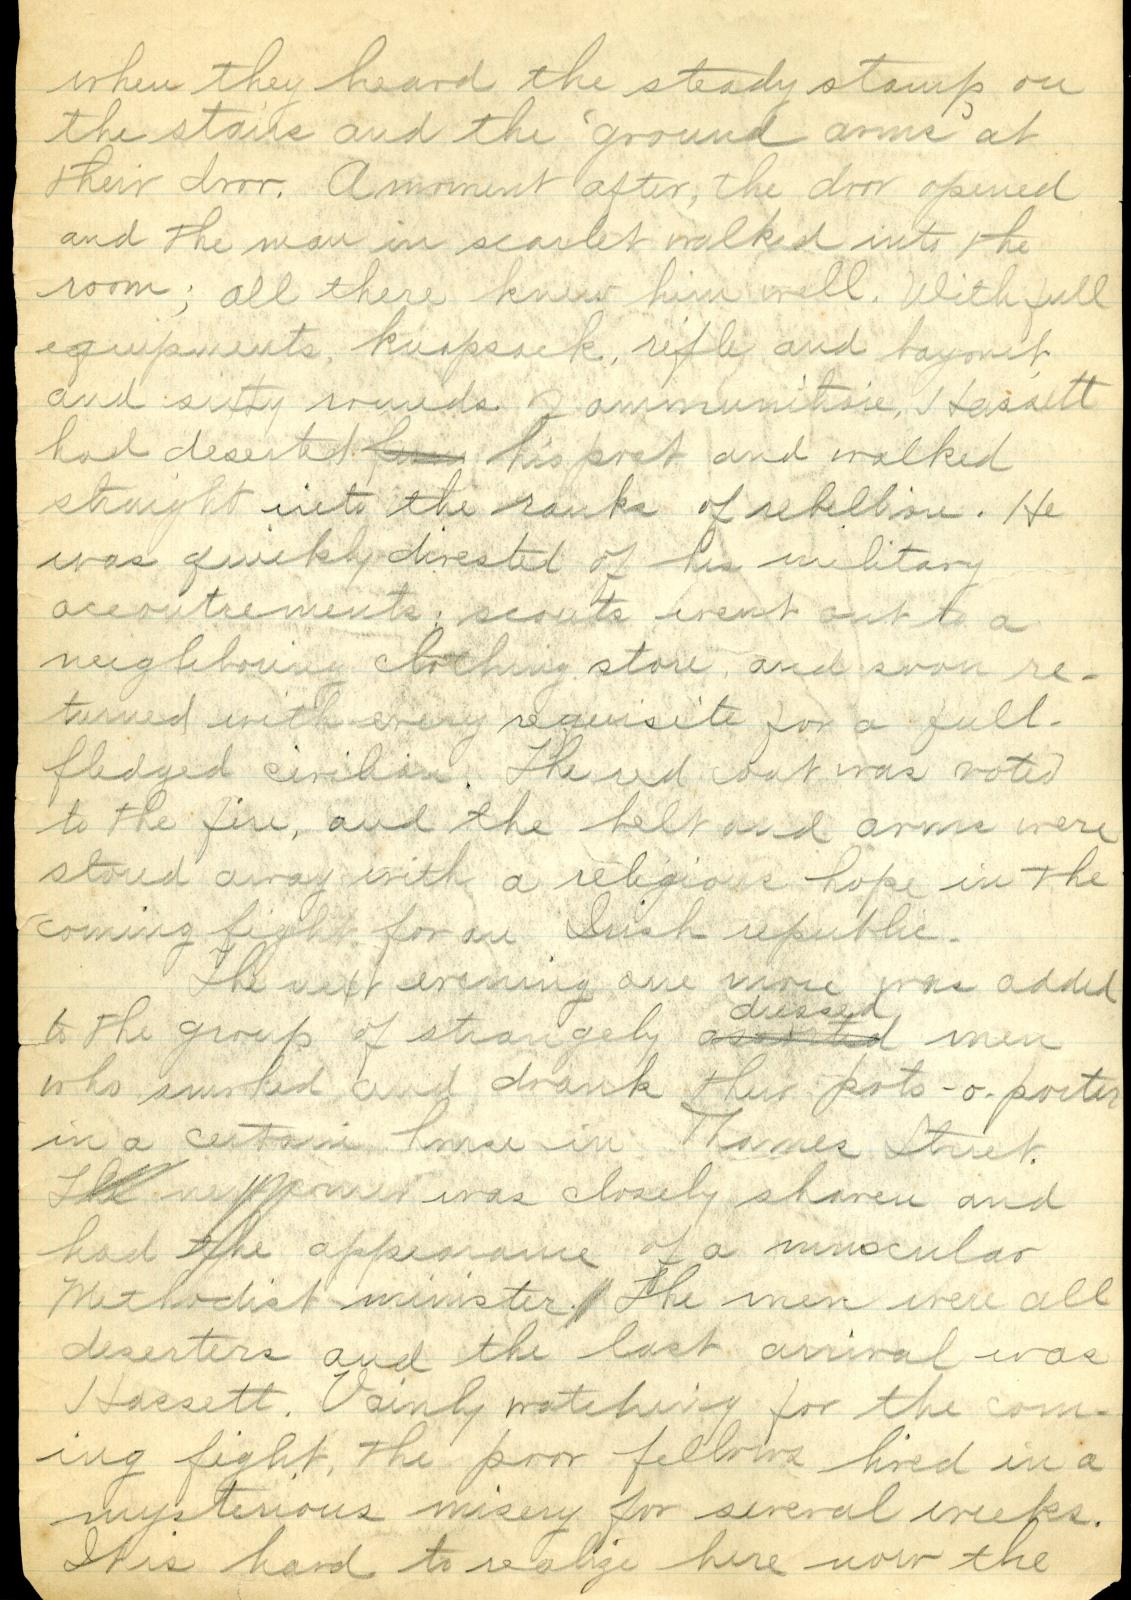 when they heard the steady stamp on
the stairs and the 'ground arms' at
their door. A moment after, the door opened
and the man in scarlet walked into the
room; all there knew him well. With full
equipments, knapsack, rifle and bayonet,
and sixty rounds of ammunition, Hassett
had deserted his post and walked
straight into the ranks of rebellion. He
was quickly divested of his military
accoutrements; scouts went out to a
neighbouring clothing store, and soon re-
turned with every requisite for a full-
fledged civilian. The red coat was voted
to the fire, and the belt and arms were
stored away with a religious hope in the
coming fight for an Irish republic.
The next evening one more was added
to the group of strangely assorted dressed men
who smoked and drank their pots-o-porter
in a certain house in Thomas Street.
The newcomer was closely shaven and
had the appearance of a muscular
Methodist minister. The men were all
deserters and the last arrival was
Hassett. Vainly watching for the com-
ing fight, the poor fellows lived in a
mysterious misery for several weeks.
It is hard to realize here now the